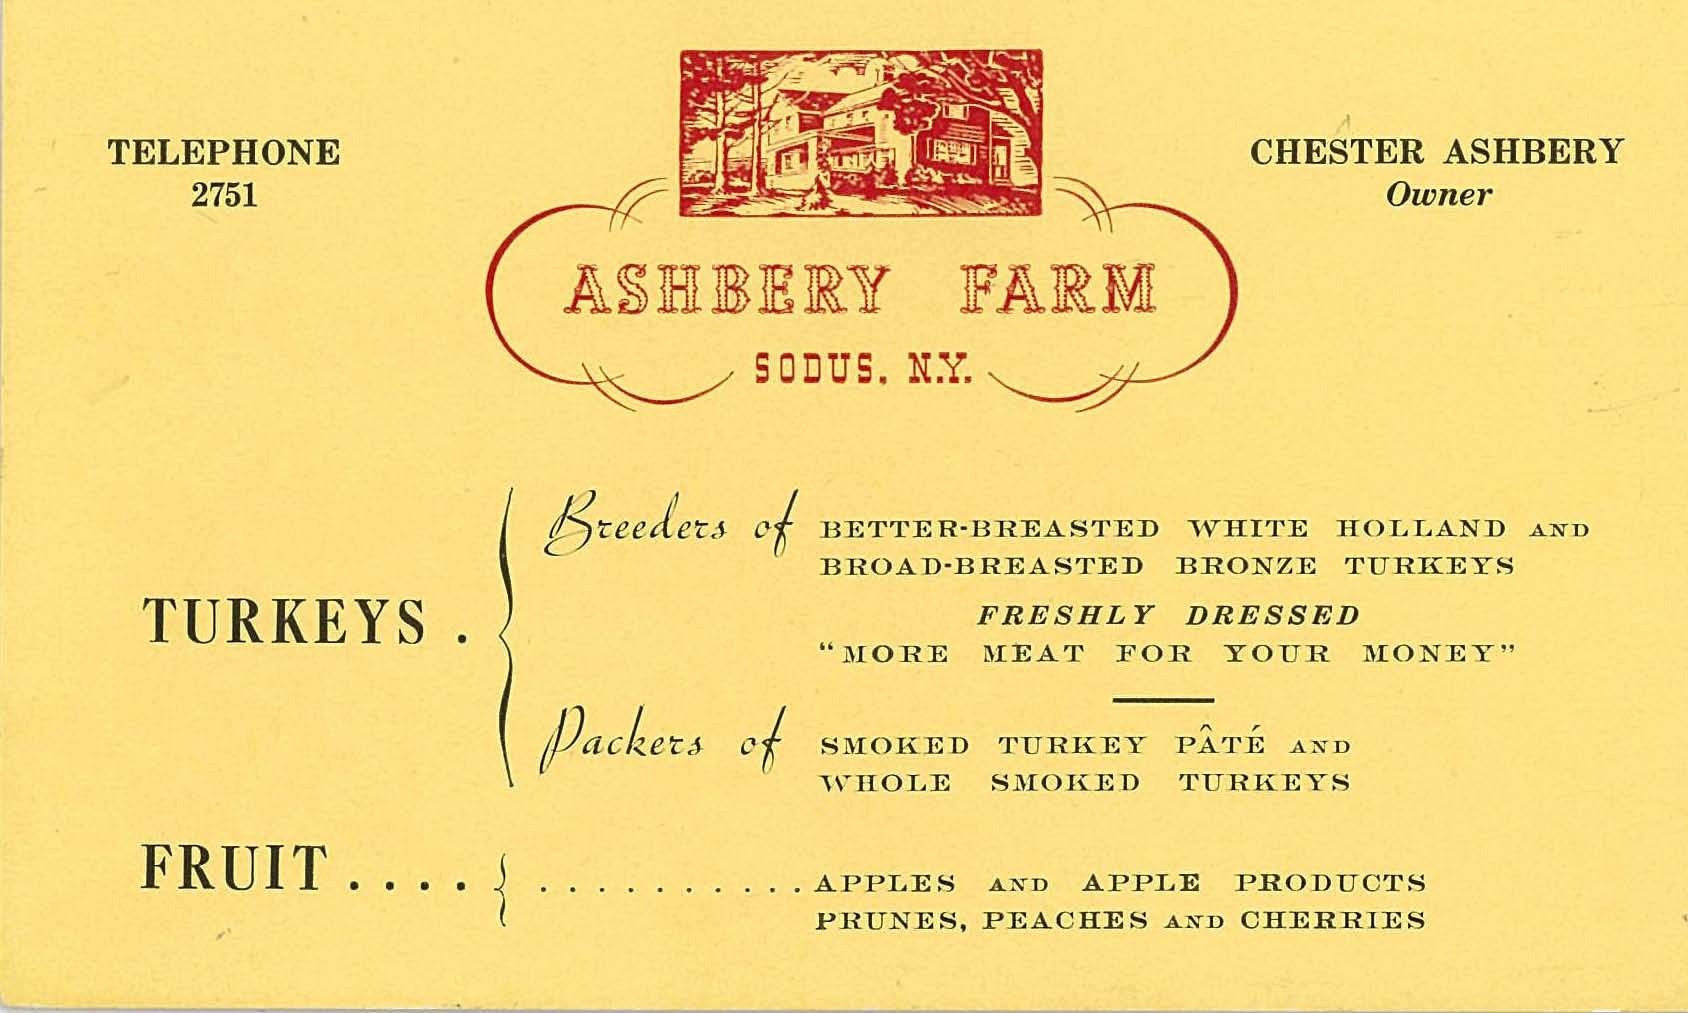 TELEPHONE
2751
CHESTER ASHBERY
Owner
ASHBERY FARM
SODUS, N.Y.
TURKEYS .
Breeders of BETTER-BREASTED WHITE HOLLAND AND
BROAD-BREASTED BRONZE TURKEYS
FRESHLY DRESSED
“MORE MEAT FOR YOUR MONEY”
Packers of SMOKED TURKEY PÂTÉ AND
WHOLE SMOKED TURKEYS
FRUIT . . . . . . . . . . . . . . . APPLES AND APPLE PRODUCTS
PRUNES, PEACHES AND CHERRIES